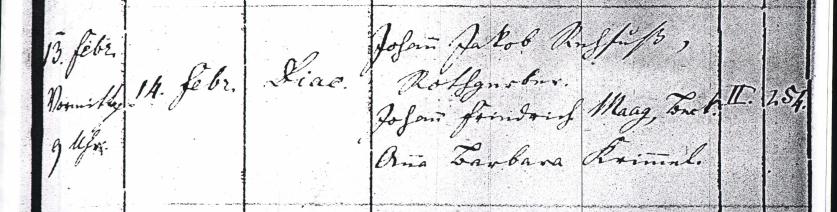 13. Febr.
Vormittag
9 Uhr.
14. Febr.
Diac.
Johann Jakob Rehfuß,
Rothgerber.
Johann Friedrich Maag, Beck.
Anna Barbara Krimmel.
II. 254.